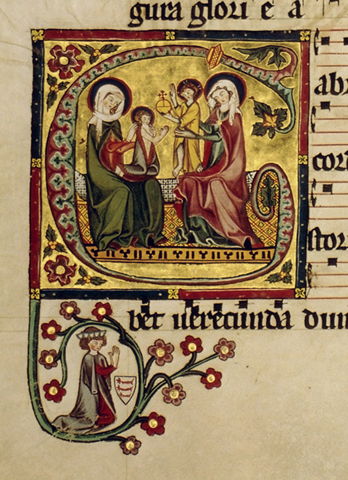 gura glori e a
abr
cor
stor
bet uerecunda